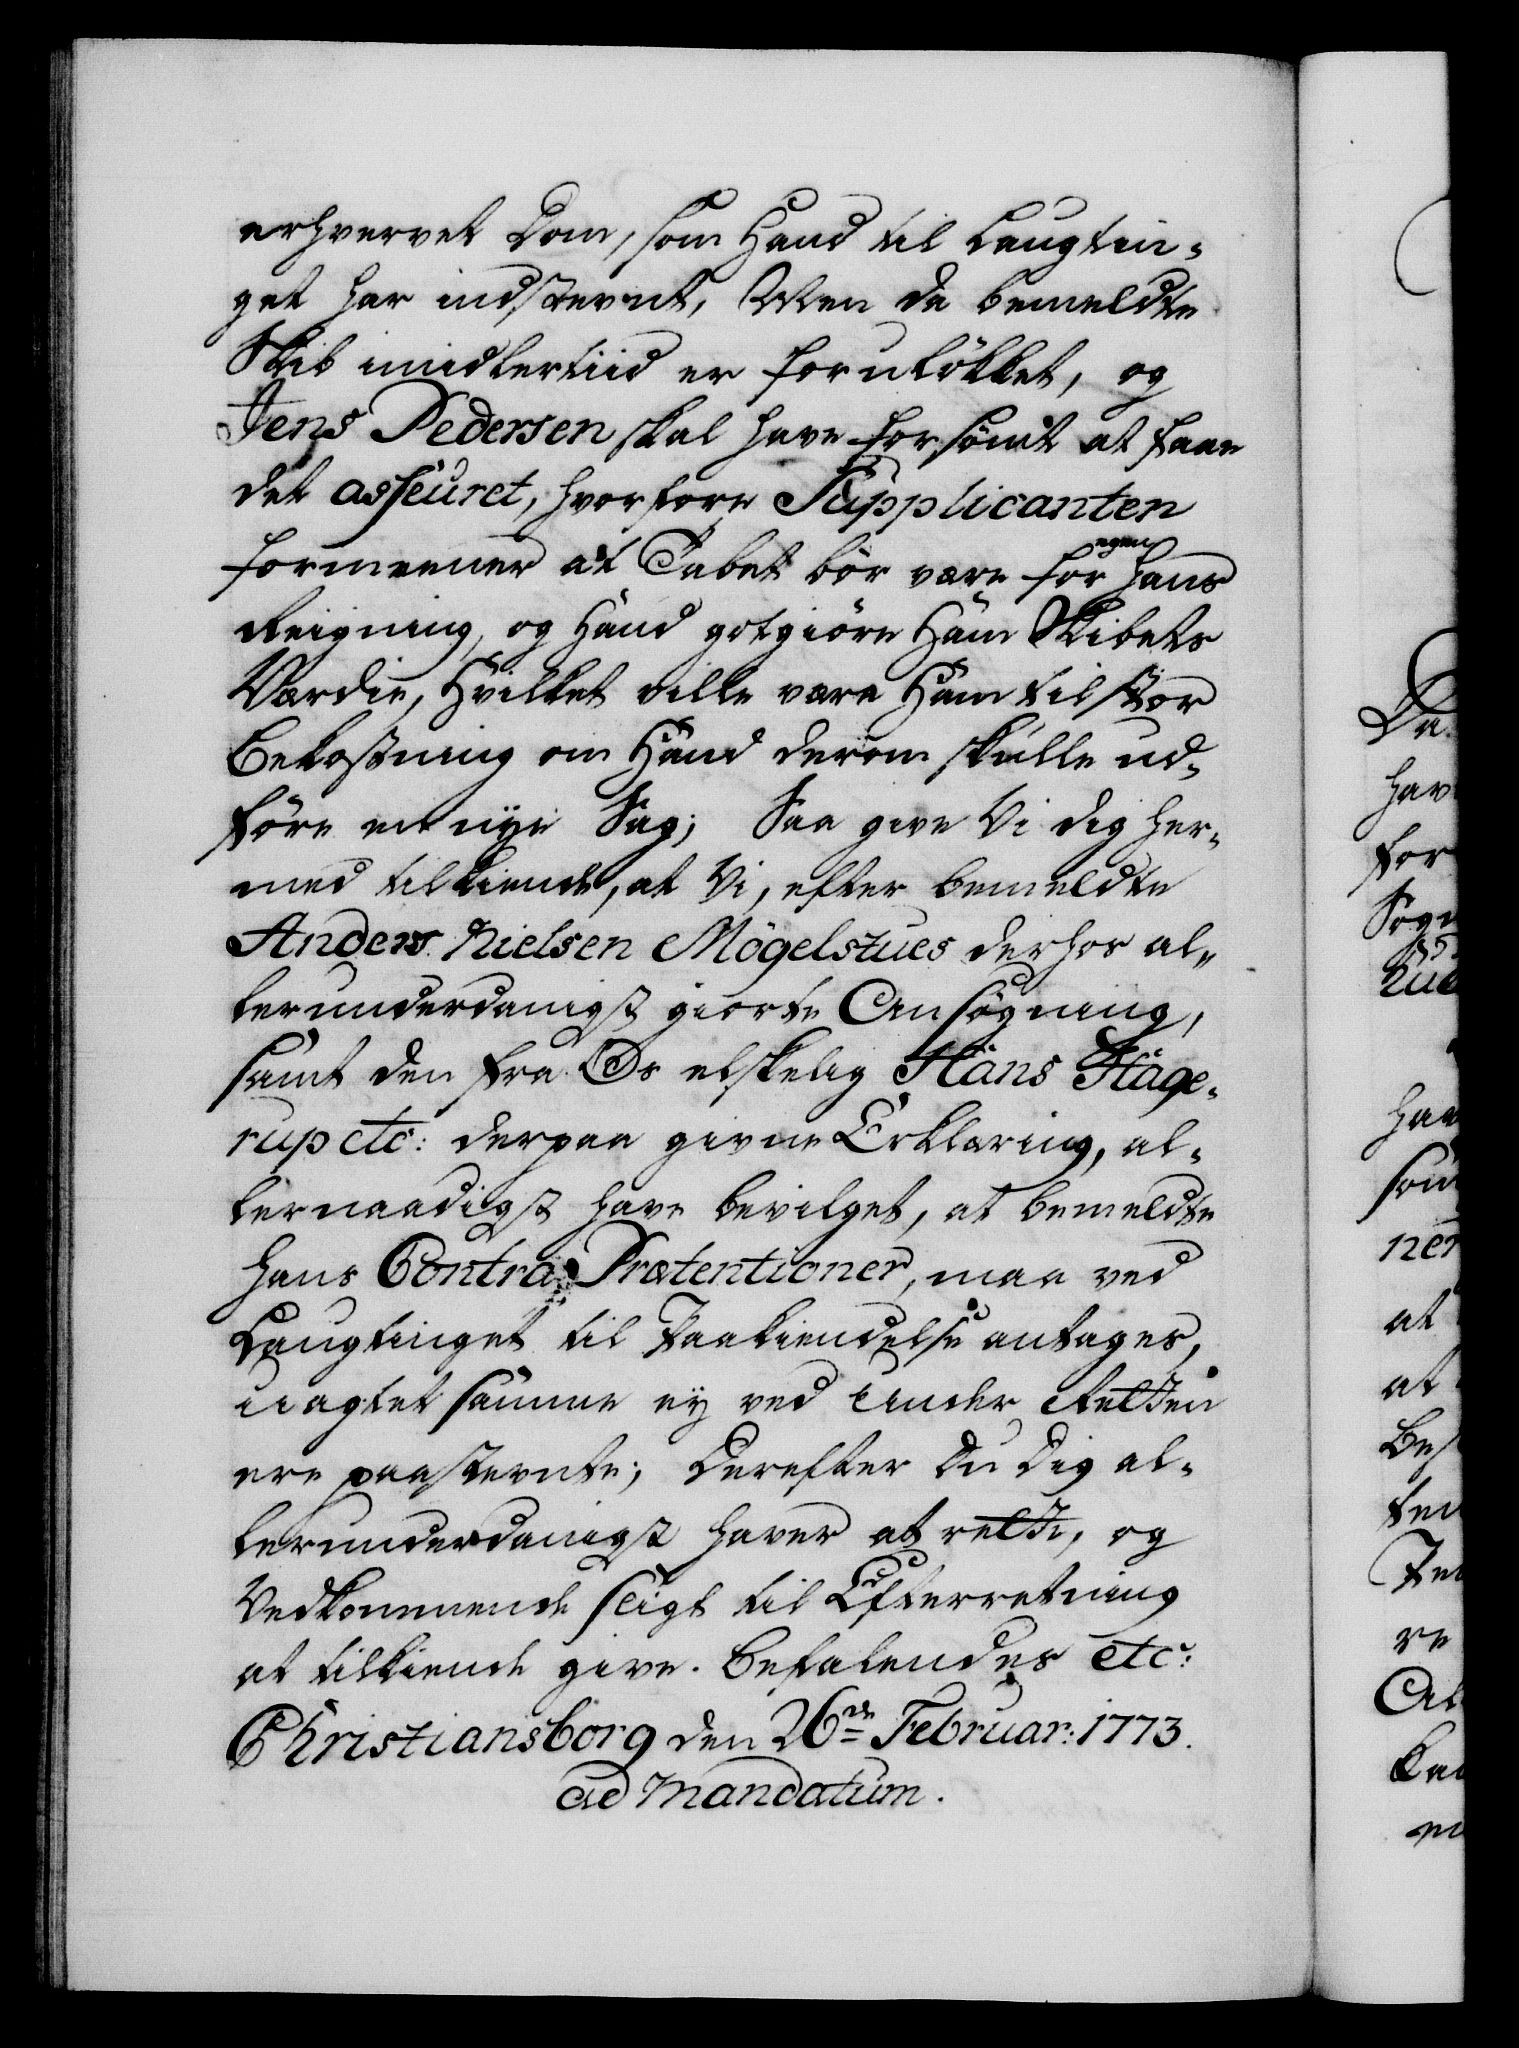 erhvervet Dom, som Hand til Laugtin-
get har indstevnt, Men da bemeldte
Skib imidlertiid er forulökket, og
Jens Pedersen skal have forsömt at faae
det asseuret, hvorfore Supplicanten
formeener at Tabet bör være for egen hans
Reigning, og Hand gotgiöre Ham Skibets
Værdie, Hvilket ville være Ham til stor
Bekostning om Hand derom skulle ud-
före en nye Sag; Saa give Vi dig her-
med tilkiende, at Vi, efter bemeldte
Anders Nielsen Mögelstues derhos al-
lerunderdanigst giorte Ansögning,
samt den fra Os elskelig Hans Hage-
rup etc: derpaa givne Erklæring, al-
lernaadigst have bevilget, at bemeldte
hans Contra Prætentioner, maa ved
Laugtinget til Paakiendelse antages,
uagtet samme ey ved Under Retten
ere paastevnte; Derefter Du Dig al-
lerunderdanigst haver at rette, og
Vedkommende sligt til Efterretning
at tilkiende give. Befalendes etc:
Christiansborg den 26de Februar: 1773.
ad Mandatum.